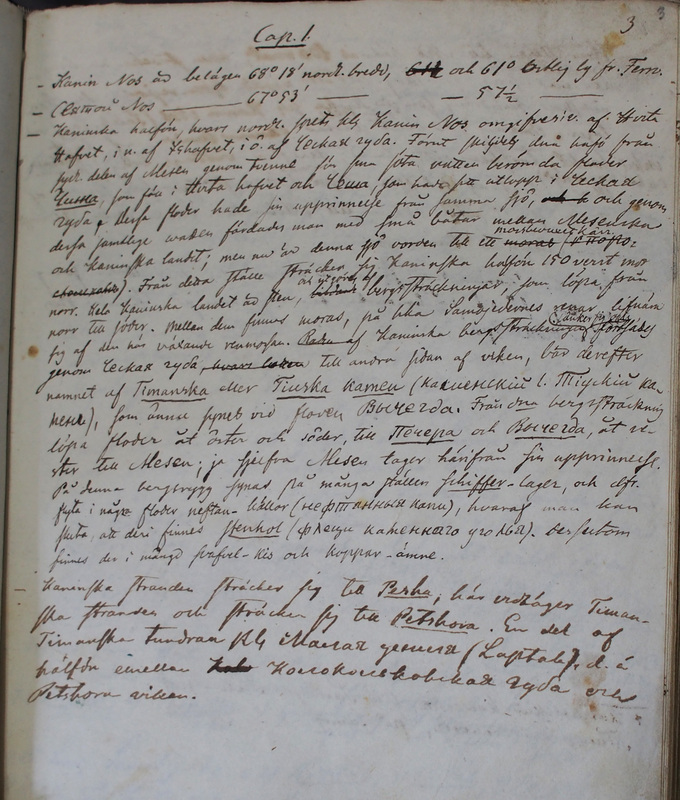 3
3
Cap. 1.
- Kanin Nos är belägen 68° 18' nordl. bredd, och 61° östlig lg fr. Ferro.
- Святой Nos ——— 67° 53' ——— — 57½ ———
- Kaninska halfön, hvars nordl. spets kls Kanin Nos omgifves i v. af Hvita
Hafvet, i n. af Ishafvet, i ö. af Ческая губа. Förut skildes denna halfö från
sydl. delen af Mesen genom tvenne för sina söta vatten berömda floder
Чижа, som föll i Hvita hafvet och Чоша, som hade sitt utlopp i Ческая
губа. Dessa floder hade sin upprinnelse från samma sjö, och genom
dessa samtlige vatten färdades man med små båtar mellan Mesenska
och Kaninska landet; men nu är denna sjö vorden till ett moras
Från detta ställe sträcker sig Kaninska halfön 150 verst mot
norr. Hela Kaninska landet är sten, bergssträckningar, som löpa från
norr till söder. Mellan dem finnas moras, på hka Samojedernes renar lifnära
sig af den här växande renmossan. Raden af Kaninska bergssträckningen
genom Ческая губа, till andra sidan af viken, bär derefter
namnet af Timanska eller Tiuska kamen (каменскiй l. Тiускiй ка-
мень), som ännu synes vid floden Вычегда. Från dna bergssträckning
löpa floder åt öster och söder, till Печера och Вычегда, åt ve-
ster till Mesen; ja sjelfva Mesen tager härifrån sin upprinnelse.
På denna bergsrygg synas på många ställen skiffer-lager, och dfr.
flyta i några floder neftan-källor (нефтянныя ключи), hvaraf man kan
sluta, att deri finnes stenkol (флецы каменнаго уголья). Dessutom
finnes der i mängd svafvel-kis och koppar-ämne.
Kaninska stranden sträcker sig till Pesha, här vidtager Timan-
ska stranden och sträcker sig till Petshora. En del af
Timanska tundran kls Малая земля (Laptah), d. ä
hälften emellan Колоколковская губа och
Petshora viken.